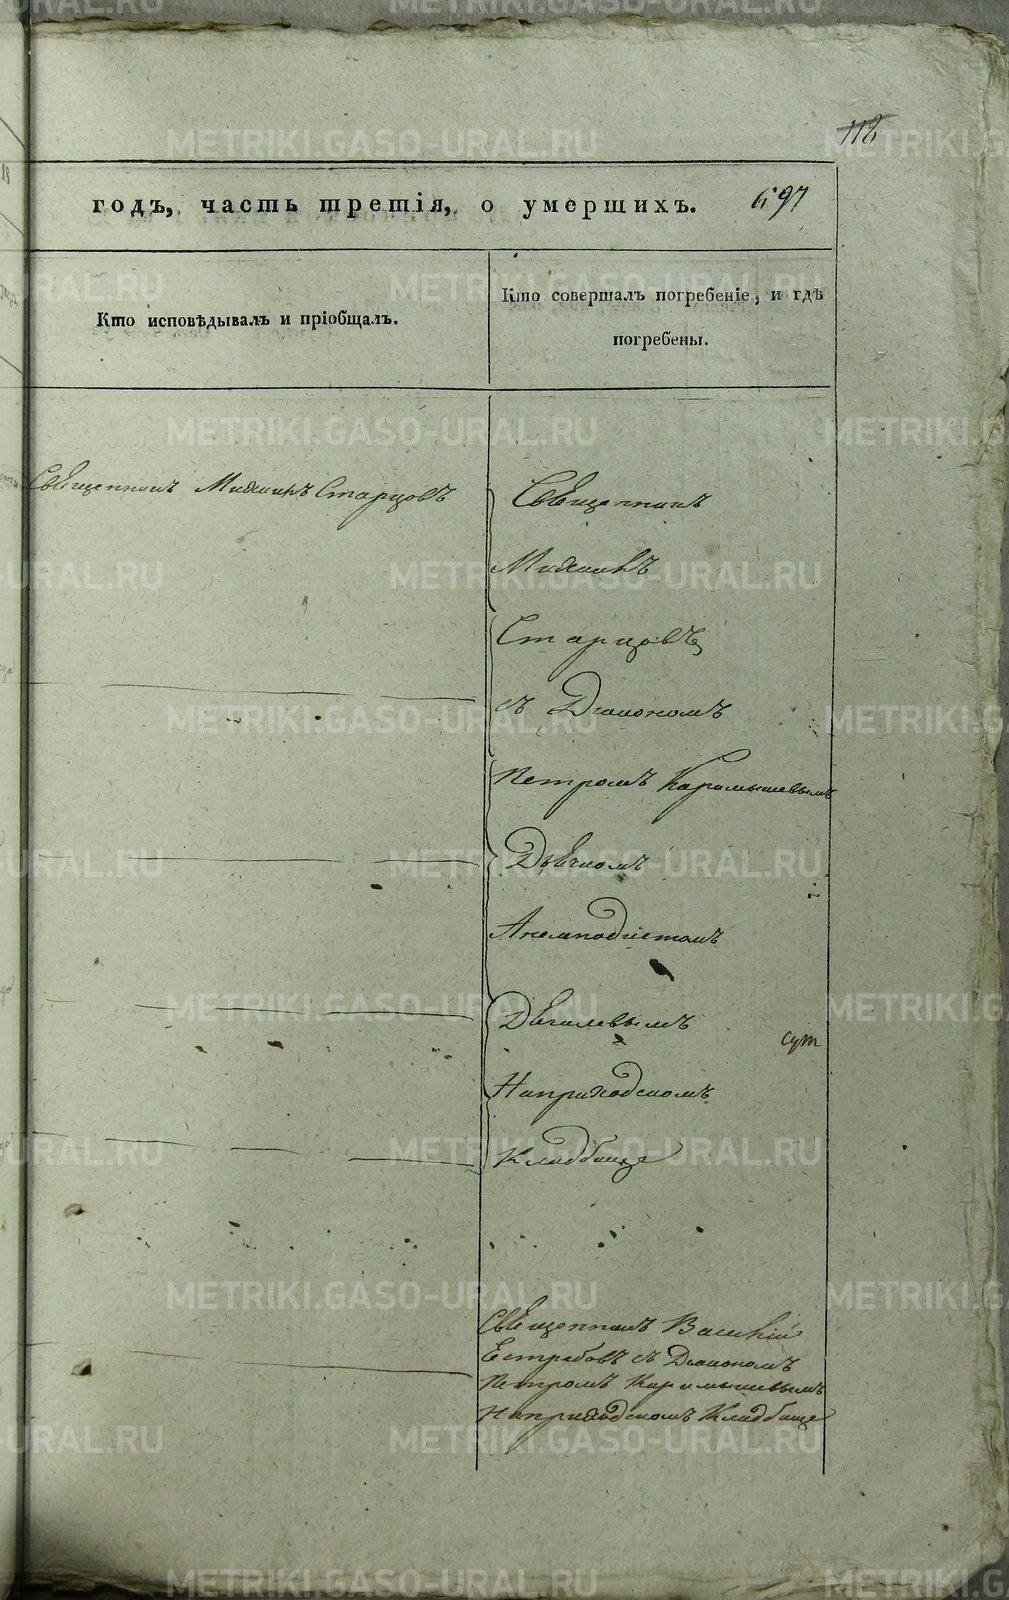 118
годъ, часть третія, о умершихъ. 697
Кто исповѣдывалъ и пріобщалъ.
Кто совершалъ погребеніе, и гдѣ
погребены.
Священникъ Михаилъ Старцовъ
Священникъ
Михаилъ
Старцовъ
съ Діакономъ
Петромъ Карамышевымъ
Дьячкомъ
Анемподистомъ
Дягилевымъ
На приходскомъ
Кладбище
сут
Священникъ Василій
Ястребовъ съ Діакономъ
Петромъ Карамышевымъ
На приходскомъ Кладбище
METRIKI.GASO-URAL.RU